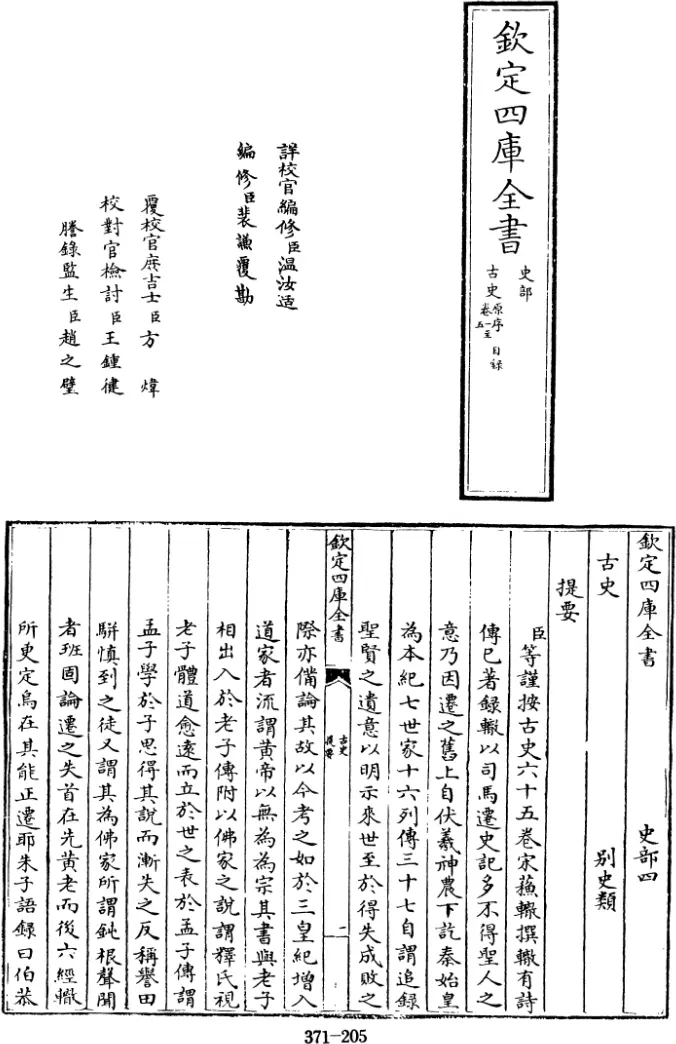 欽定四庫全書
史部
古史
原序
目録
卷一至
五
詳校官編修臣温汝适
編修臣裴謙覆勘
覆校官庶吉士臣方煒
校對官檢討臣王鍾健
謄錄監生臣趙之璧
欽定四庫全書
史部四
古史
别史類
提要
臣等謹按古史六十五卷宋蘓轍撰轍有詩
傳已著録轍以司馬遷史記多不得聖人之
意乃因遷之舊上自伏羲神農下訖秦始皇
為本紀七世家十六列傳三十七自謂追録
聖賢之遺意以明示來世至於得失成敗之
欽定四庫全書
古史
提要
一
際亦備論其故以今考之如於三皇紀增入
道家者流謂黄帝以無為為宗其書與老子
相出入於老子傳附以佛家之說謂釋氏視
老子體道愈逺而立於世之表於孟子傳謂
孟子學於子思得其說而漸失之反稱譽田
駢慎到之徒又謂其為佛家所謂鈍根聲聞
者班固論遷之失首在先黄老而後六經轍
所更定烏在其能正遷耶朱子語録曰伯恭
371-205